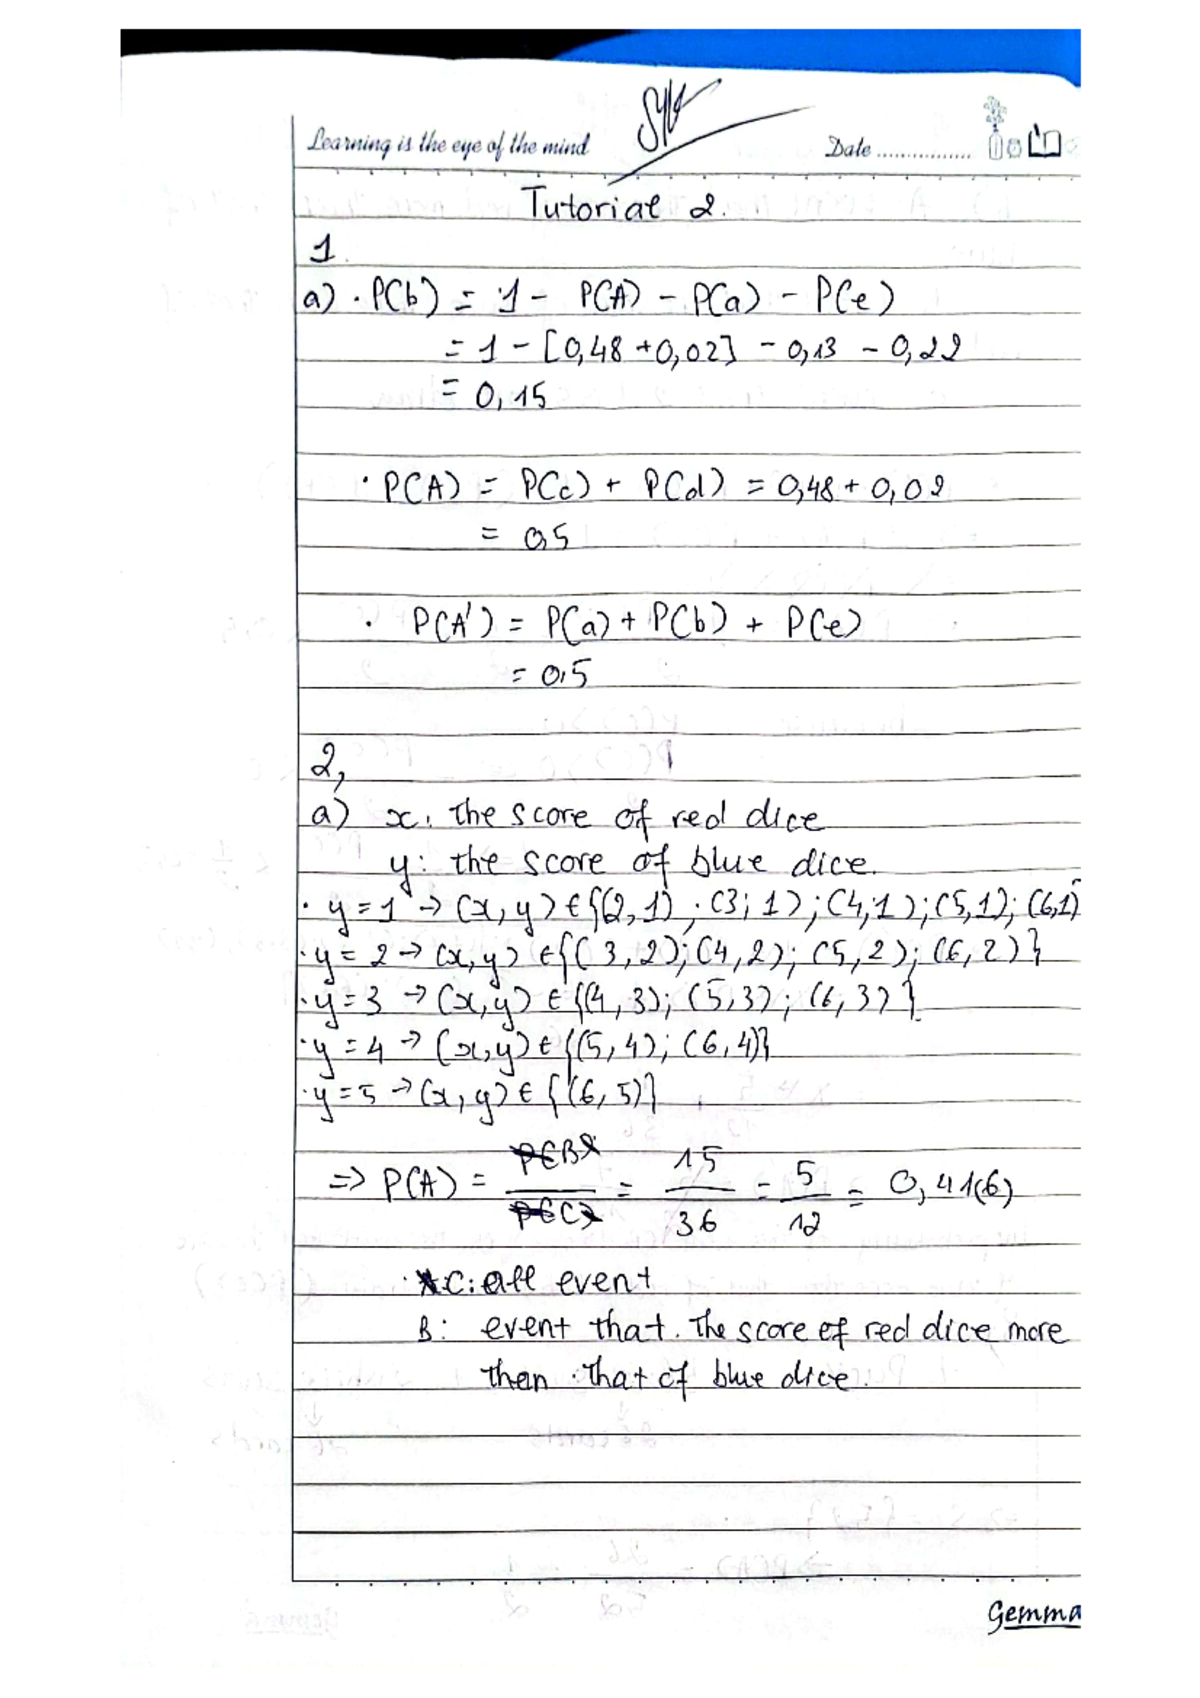 Learning is the eye of the mind
Date ................
Tutorial 2.
1.
a) . P(b) = 1 - P(A) - P(a) - P(e)
= 1 - [0,48 + 0,02] - 0,13 - 0,22
= 0,15
. P(A) = P(c) + P(d) = 0,48 + 0,02
= 0,5
. P(A') = P(a) + P(b) + P(e)
= 0,5
2,
a) x: the score of red dice
y: the score of blue dice.
. y = 1 → (x, y) ∈ {(2, 1); (3; 1); (4, 1); (5, 1); (6, 1)
. y = 2 → (x, y) ∈ {(3, 2); (4, 2); (5, 2); (6, 2)}
. y = 3 → (x, y) ∈ {(4, 3); (5, 3); (6, 3)}
. y = 4 → (x, y) ∈ {(5, 4); (6, 4)}
. y = 5 → (x, y) ∈ {(6, 5)}
=> P(A) = P(B) / P(C) = 15/36 = 5/12 = 0,41(6)
. C: all event
B: event that. The score of red dice more
then that of blue dice.
Gemma